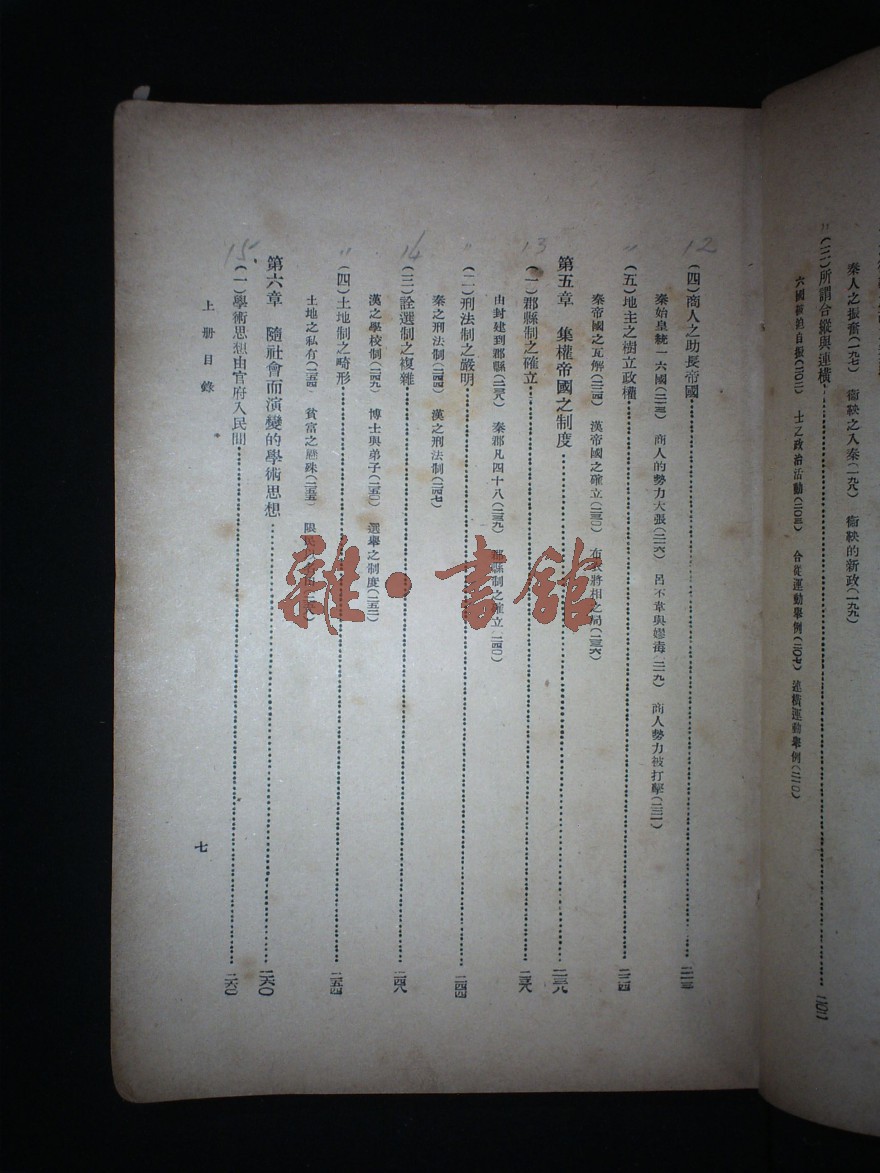 秦人之振奮(一九七) 衞鞅之入秦(一九八) 衞鞅的新政(一九九)
〃 (三)所謂合縱與連橫……二〇二
六國被迫自振(二〇二) 士之政治活動(二〇三) 合從運動舉例(二〇七) 連橫運動舉例(二一〇)
12 (四)商人之助長帝國……二一三
秦始皇統一六國(二一三) 商人的勢力大張(二一六) 呂不韋與嫪毐(二一九) 商人勢力被打擊(二二一)
〃 (五)地主之樹立政權……二二四
秦帝國之瓦解(二二四) 漢帝國之確立(二三〇) 布衣將相之局(二三六)
第五章 集權帝國之制度……二三八
13 (一)郡縣制之確立……二三八
由封建到郡縣(二三八) 秦郡凡四十八(二三九) 郡縣制之確立(二四〇)
〃 (二)刑法制之嚴明……二四四
秦之刑法制(二四四) 漢之刑法制(二四七)
14 (三)詮選制之複雜……二四八
漢之學校制(二四九) 博士與弟子(二五〇) 選舉之制度(二五二)
〃 (四)土地制之畸形……二五四
土地之私有(二五四) 貧富之懸殊(二五五) 限
第六章 隨社會而演變的學術思想……二六〇
15 (一)學術思想由官府入民間……二六〇
上册目錄
七
雜·書館